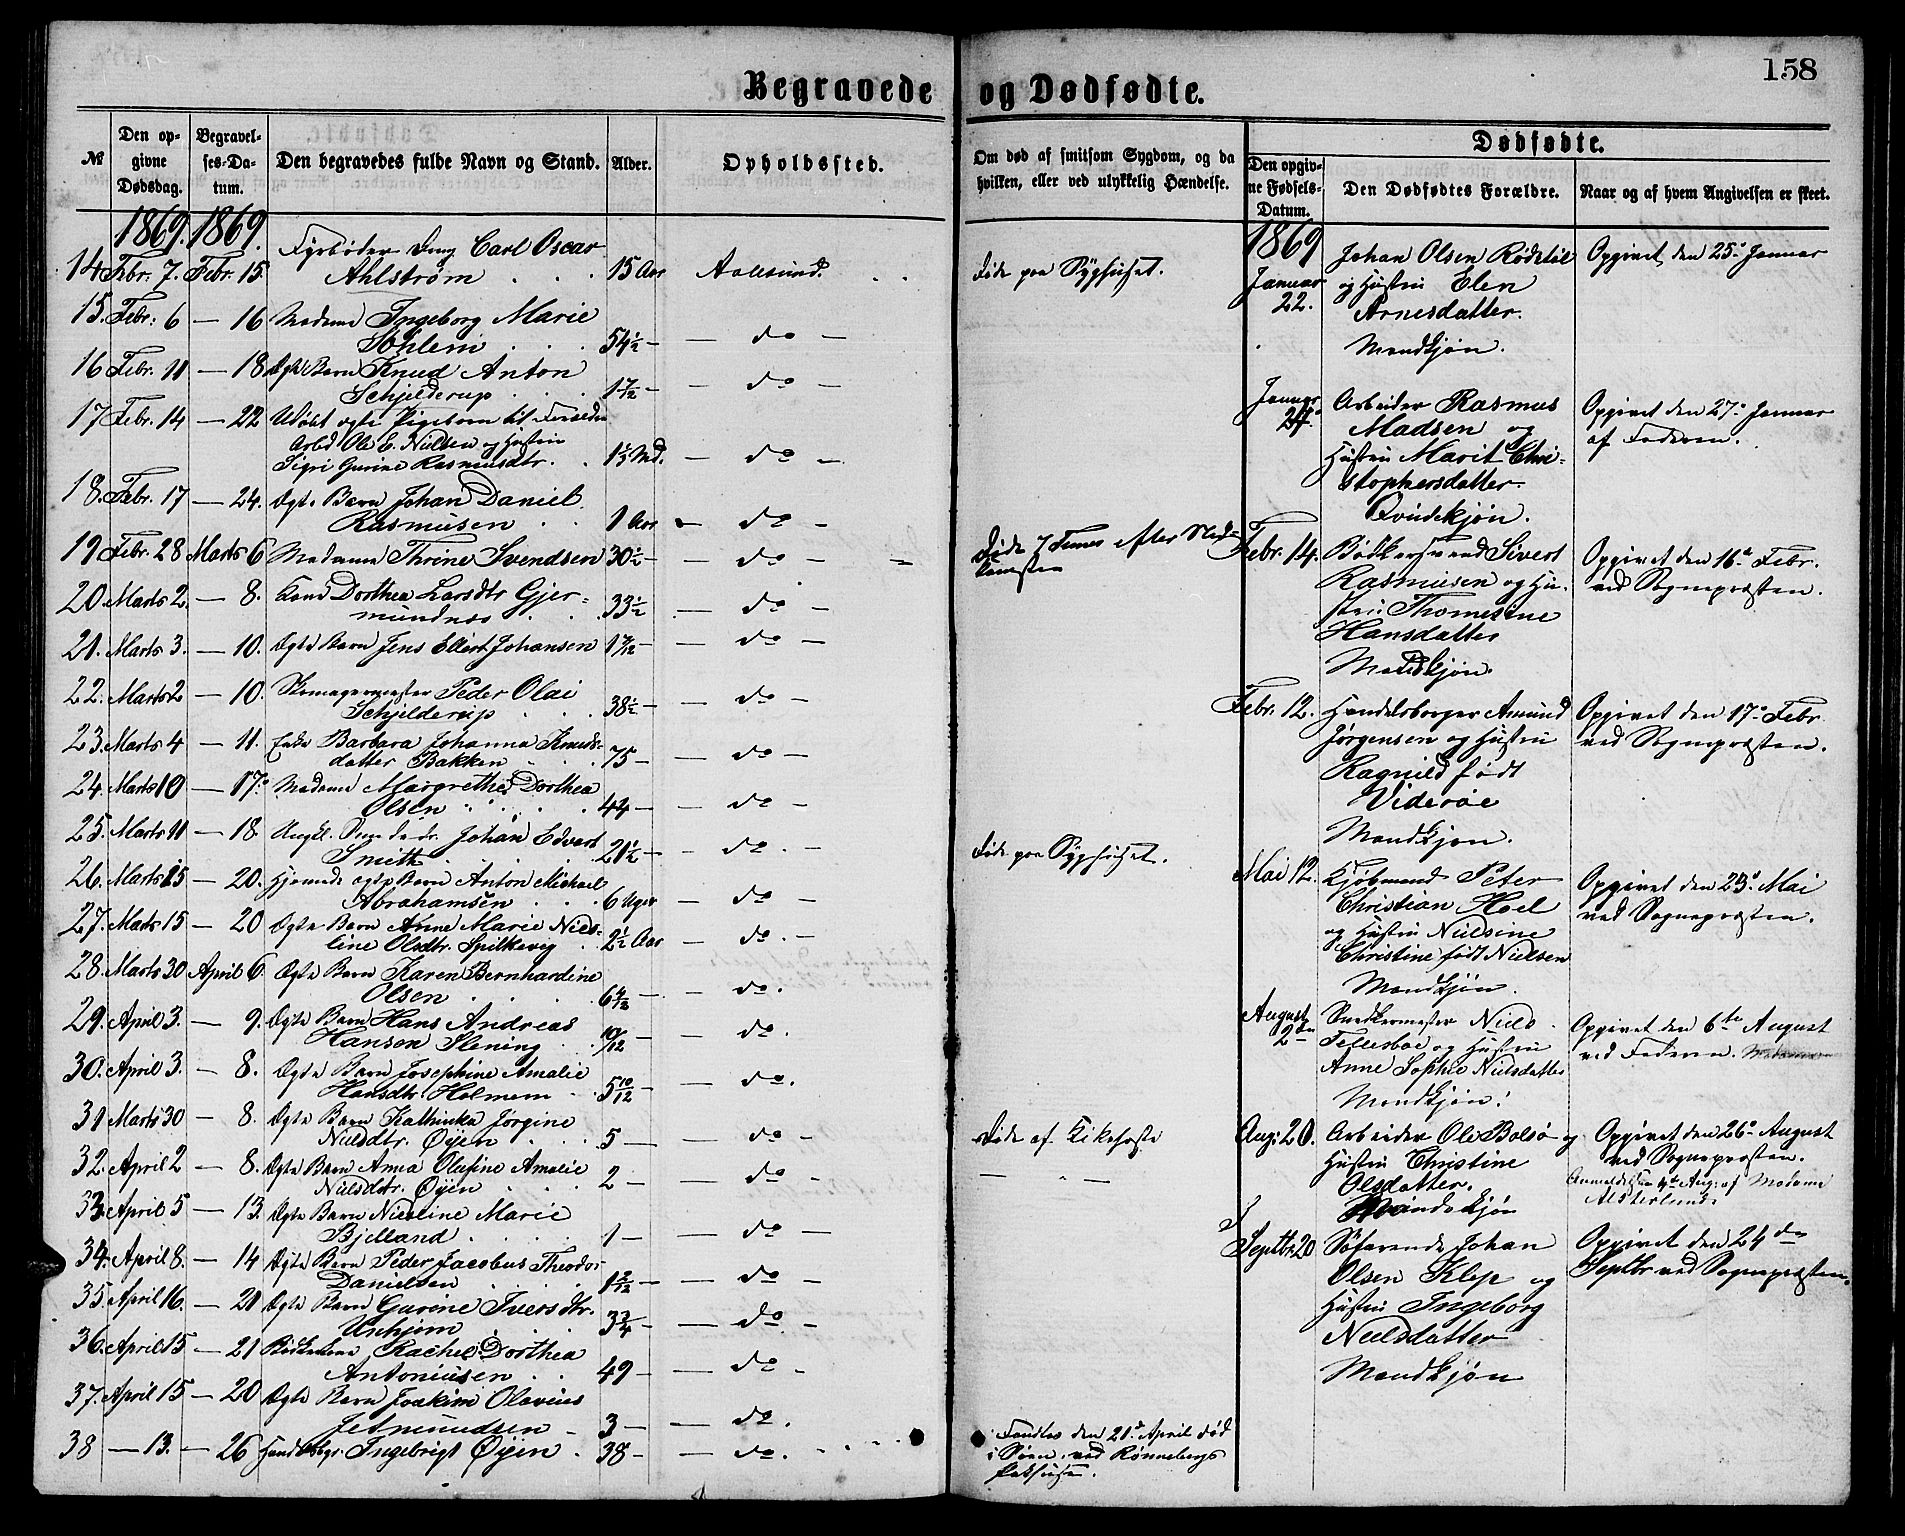 158
Begravede og Dødfødte.
№
Den op-
givne
Dødsdag.
Begravel-
ses-Da-
tum.
Den begravedes fulde Navn og Stand.
Alder.
Opholdssted.
Om død af smitsom Sygdom, og da
hvilken, eller ved ulykkelig Hændelse.
Dødfødte.
Den opgiv-
ne Fødsels-
Datum.
Den Dødfødtes Forældre.
Naar og af hvem Angivelsen er skeet.
1869. 1869.
Fyrbøder Carl Oscar
14 Febr. 7. Febr. 15. Ahlstrøm 15 Aar Aalesund. Døde paa Sygehuset.
15. Febr. 6 — 16 Madame Ingeborg Marie
Sohlem 54½ — — do —
16 Febr. 11 — 18 Ægte Barn Knud Anton
Schjelderup 1 7/12 — — do —
17 Febr. 14 — 22 Udøbt ægte Pigebarn til
Arbd Ole E. Nielsen og Hustru
Sigri Gurine Rasmusdtr. 1⅓ Md. — do —
18. Febr. 17 — 24. Ægte Barn Johan Daniel
Rasmusen 1 Aar — do —
19 Febr. 28 Marts 6 Madame Thrine Svendsen 30½ — — do — Døde 7 Timer efter Ned-
komsten
20. Marts 2. — 8. Dorthea Larsdtr Gjer-
mundnes 33½ — do —
21. Marts 3. — 10. Ægte Barn Jens Ellert Johansen — do —
22. Marts 2 — 10. Skomagermester Peder Olai
Schjelderup 38½ — — do —
23. Marts 4 — 11. Enke Barbara Johanna Knuds-
datter Bakken 75 — — do —
24. Marts 10 — 17. Madame Margrethe Dorthea
Olsen 44 — — do —
25. Marts 11 — 18. Ungkl. Johan Edvart
Smith 21½ — — do. — Døde paa Sygehuset.
26. Marts 15 — 20. Hjemmedøbt Barn Anton Michael
Abrahamsen 6 Uger — do —
27. Marts 15 — 20 Ægte Barn Anne Marie Nico-
line Olsdtr. Spilkevig 2½ Aar — do. —
28. Marts 30 April 6. Ægte Barn Karen Bernhardine
Olsen — do.
29. April 3. — 9. Ægte Barn Hans Andreas
Hansen Slening 10/12 — — do.
30. April 3. — 8. Ægte Barn Josephine Amalie
Hansdtr. Holmem 5 10/12 — — do.
31 Marts 30 — 8. Ægte Barn Kathinka Jørgine
Nielsdtr. Øyen 5 — — do — Døde af Kikhoste
32. April 2 — 8. Ægte Barn Anna Olufine Amalie
Nielsdtr. Øyen 2 — — do. — " —
33. April 5 — 13. Ægte Barn Nicoline Marie
Bjelland 1 — — do —
34. April 8. — 14 Ægte Barn Peder Jacobus Theodor
Danielsen — do —
35. April 16. — 21 Ægte Barn Gurine Iversdtr.
Unhjem 3¾ — — do —
36. April 15 — 21 Rachel Dorthea
Antoniusen 49 — — do
37. April 15 — 20 Ægte Barn Joakim Olavius
Jetmundsen 3 — — do.
38 — 13. — 26 Handelsbgr. Ingebrigt Øyen 38 — — do. Fandtes den 21de April død
i Søen ved Rønnebergs
Pakhuse.
1869
Januar
22. Johan Olsen Rødetøl
og Hustru Elen
Arnesdatter.
Mandkjøn. Opgivet den 25de Januar
Januar
24. Arbeider Rasmus
Madsen og
Hustru Marit Chri-
stophersdatter.
Qvindekjøn. Opgivet den 27de Januar
af Faderen.
Febr. 14. Bødkersvend Sivert
Rasmusen og Hu-
stru Thomesine
Hansdatter
Mandkjøn Opgivet den 16de Febr.
ved Sognepræsten.
Febr. 12. Handelsborger Amund
Jørgensen og Hustru
Ragnild født
Viderøe
Mandkjøn. Opgivet den 17de Febr.
ved Sognepræsten.
Mai 12. Kjøbmand Peter
Christian Hoel
og Hustru Nielsine
Christine født Nielsen
Mandkjøn. Opgivet den 23de Mai
ved Sognepræsten.
August
2den Snedkermester Niels
Tellesbøe og Hustru
Anne Sophie Nielsdatter
Mandkjøn. Opgivet den 6te August
ved Faderen.
Aug: 20. Arbeider Ole Bolsø og
Hustru Christine
Olsdatter.
Opgivet den 26de August
ved Sognepræsten.
Aug: af Madame
Septbr. 20 Søfarende Johan
Olsen Klep og
Hustru Ingeborg
Nielsdatter
Mandkjøn Opgivet den 24de
Septbr ved Sognepræsten.